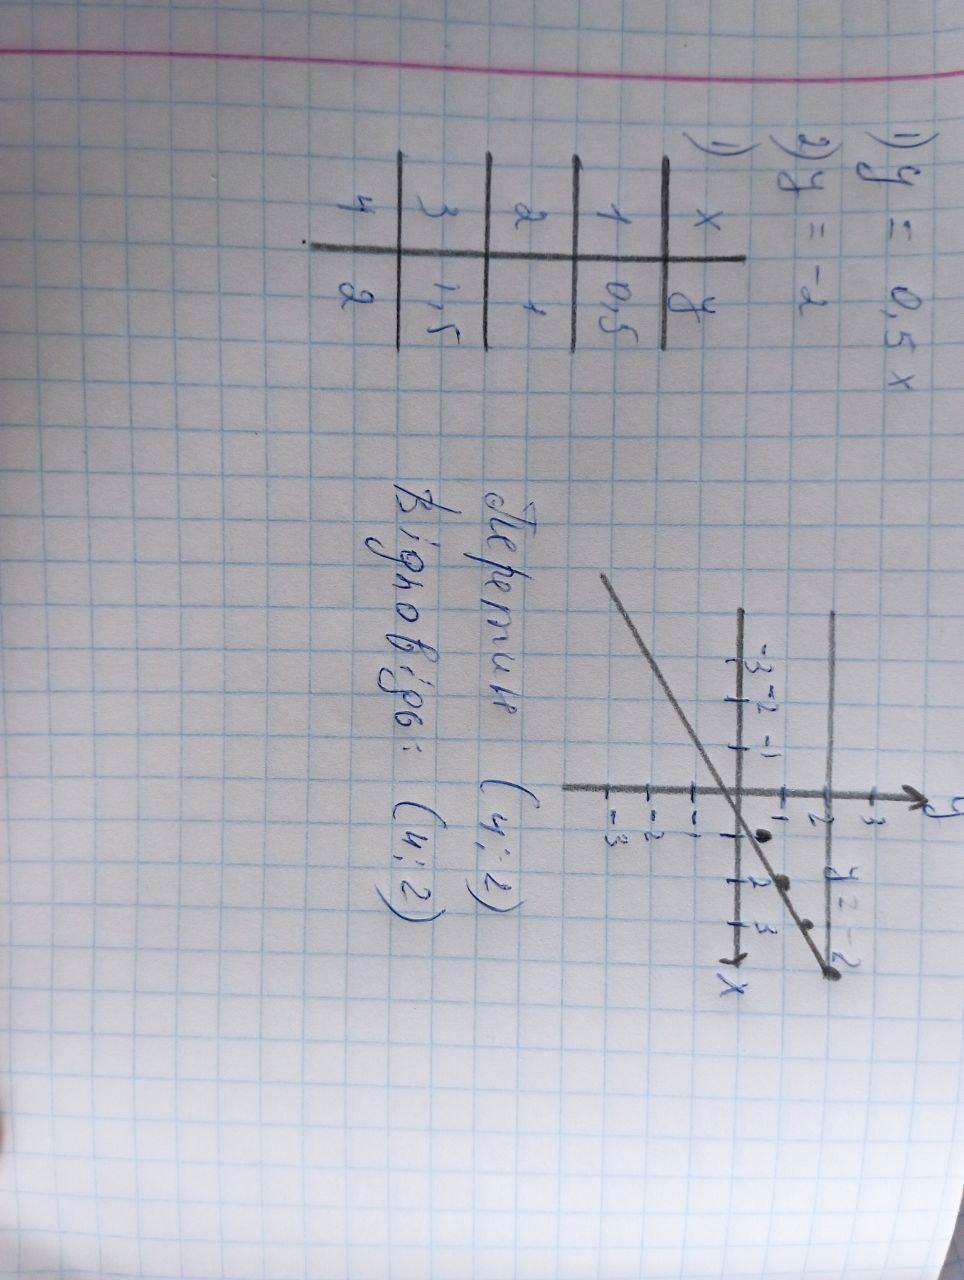 1) y = 0,5 x
2) y = -2
1)
x y
1 0,5
2 1
3 1,5
4 2
y
3
2
1
-1
-2
-3
-3 -2 -1
1 2 3
x
y = -2
Перетин (4; 2)
Відповідь: (4; 2)